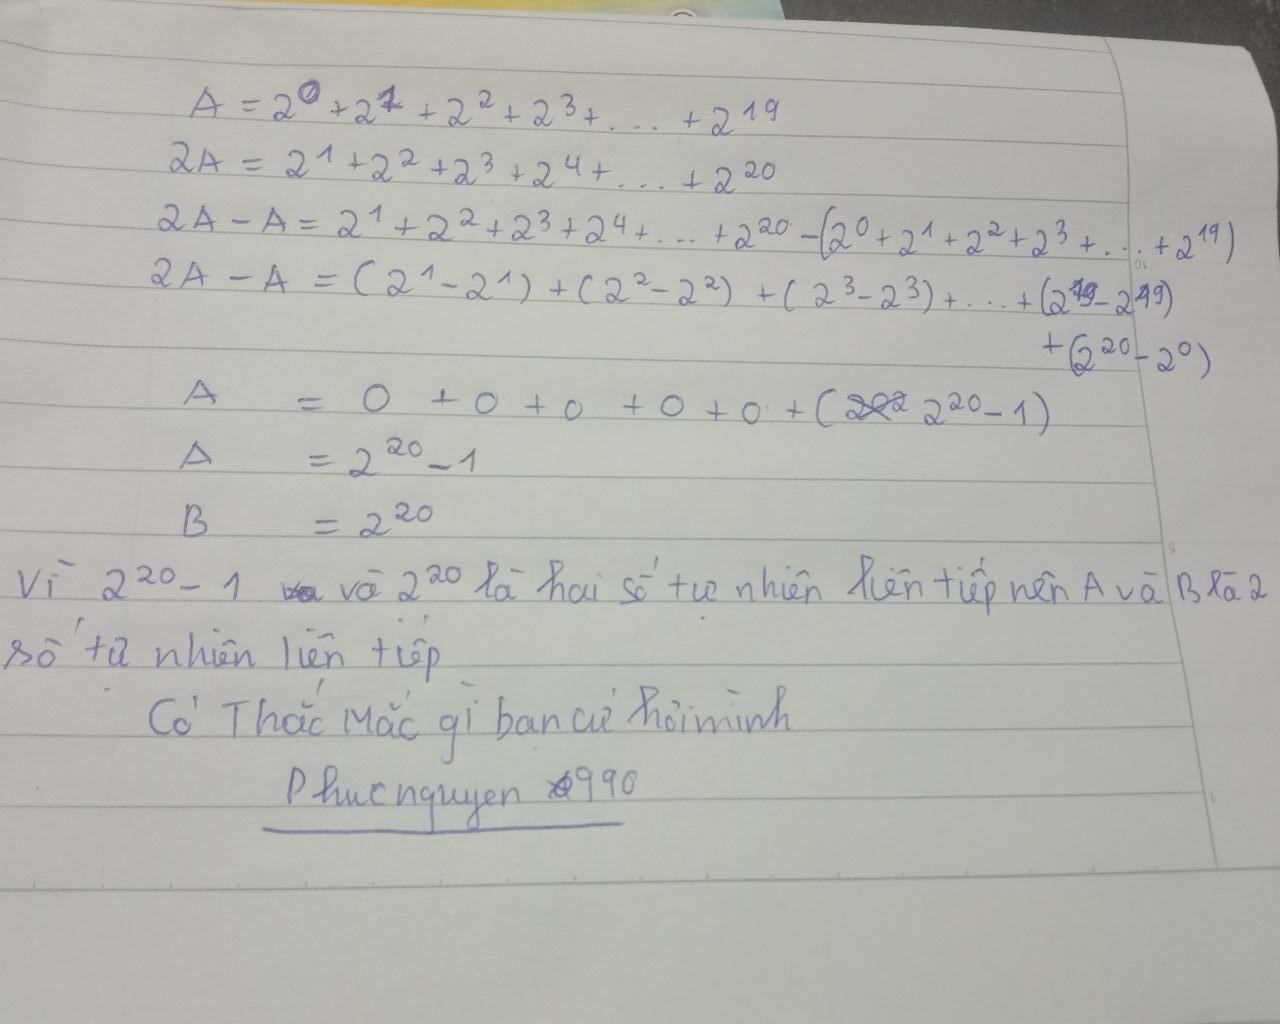 A = 2⁰ + 2¹ + 2² + 2³ + .... + 2¹⁹
2A = 2¹ + 2² + 2³ + 2⁴ + .... + 2²⁰
2A - A = 2¹ + 2² + 2³ + 2⁴ + .... + 2²⁰ - (2⁰ + 2¹ + 2² + 2³ + .... + 2¹⁹)
2A - A = (2¹ - 2¹) + (2² - 2²) + (2³ - 2³) + .... + (2¹⁹ - 2¹⁹)
+ (2²⁰ - 2⁰)
A = 0 + 0 + 0 + 0 + 0 + (2²⁰ - 1)
A = 2²⁰ - 1
B = 2²⁰
Vì 2²⁰ - 1 và 2²⁰ là hai số tự nhiên liên tiếp nên A và B là 2
số tự nhiên liên tiếp
Có Thắc Mắc gì bạn cứ hỏi mình
Phucnguyen 990